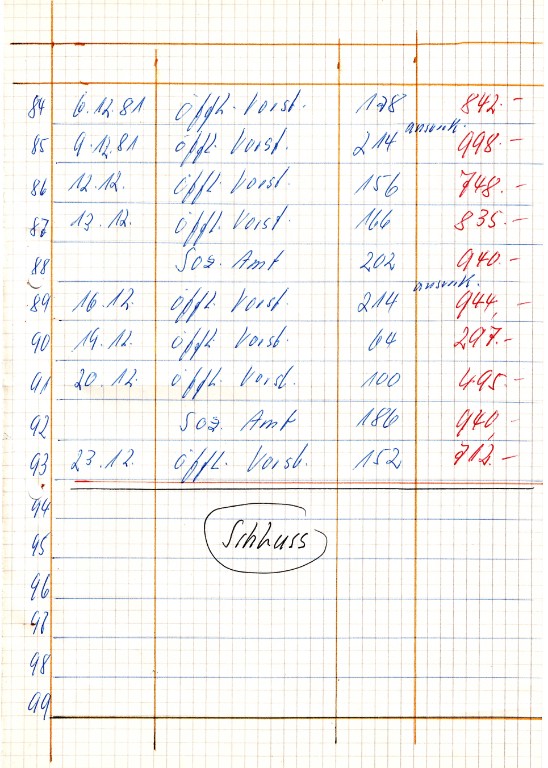 84 6.12.81 öffl. Vorst. 178 842.-
85 9.12.81 öffl. Vorst. 214 ausverk. 998.-
86 12.12. öffl. Vorst. 156 748.-
87 13.12. öffl. Vorst 166 835.-
88 Soz. Amt 202 940.-
89 16.12. öffl. Vorst 214 ausverk. 944,-
90 19.12. öffl. Vorst 64 297.-
91 20.12. öffl. Vorst. 100 495.-
92 Soz. Amt 186 940,-
93 23.12. öffl. Vorst. 152 712.-
94
95 Schluss
96
97
98
99